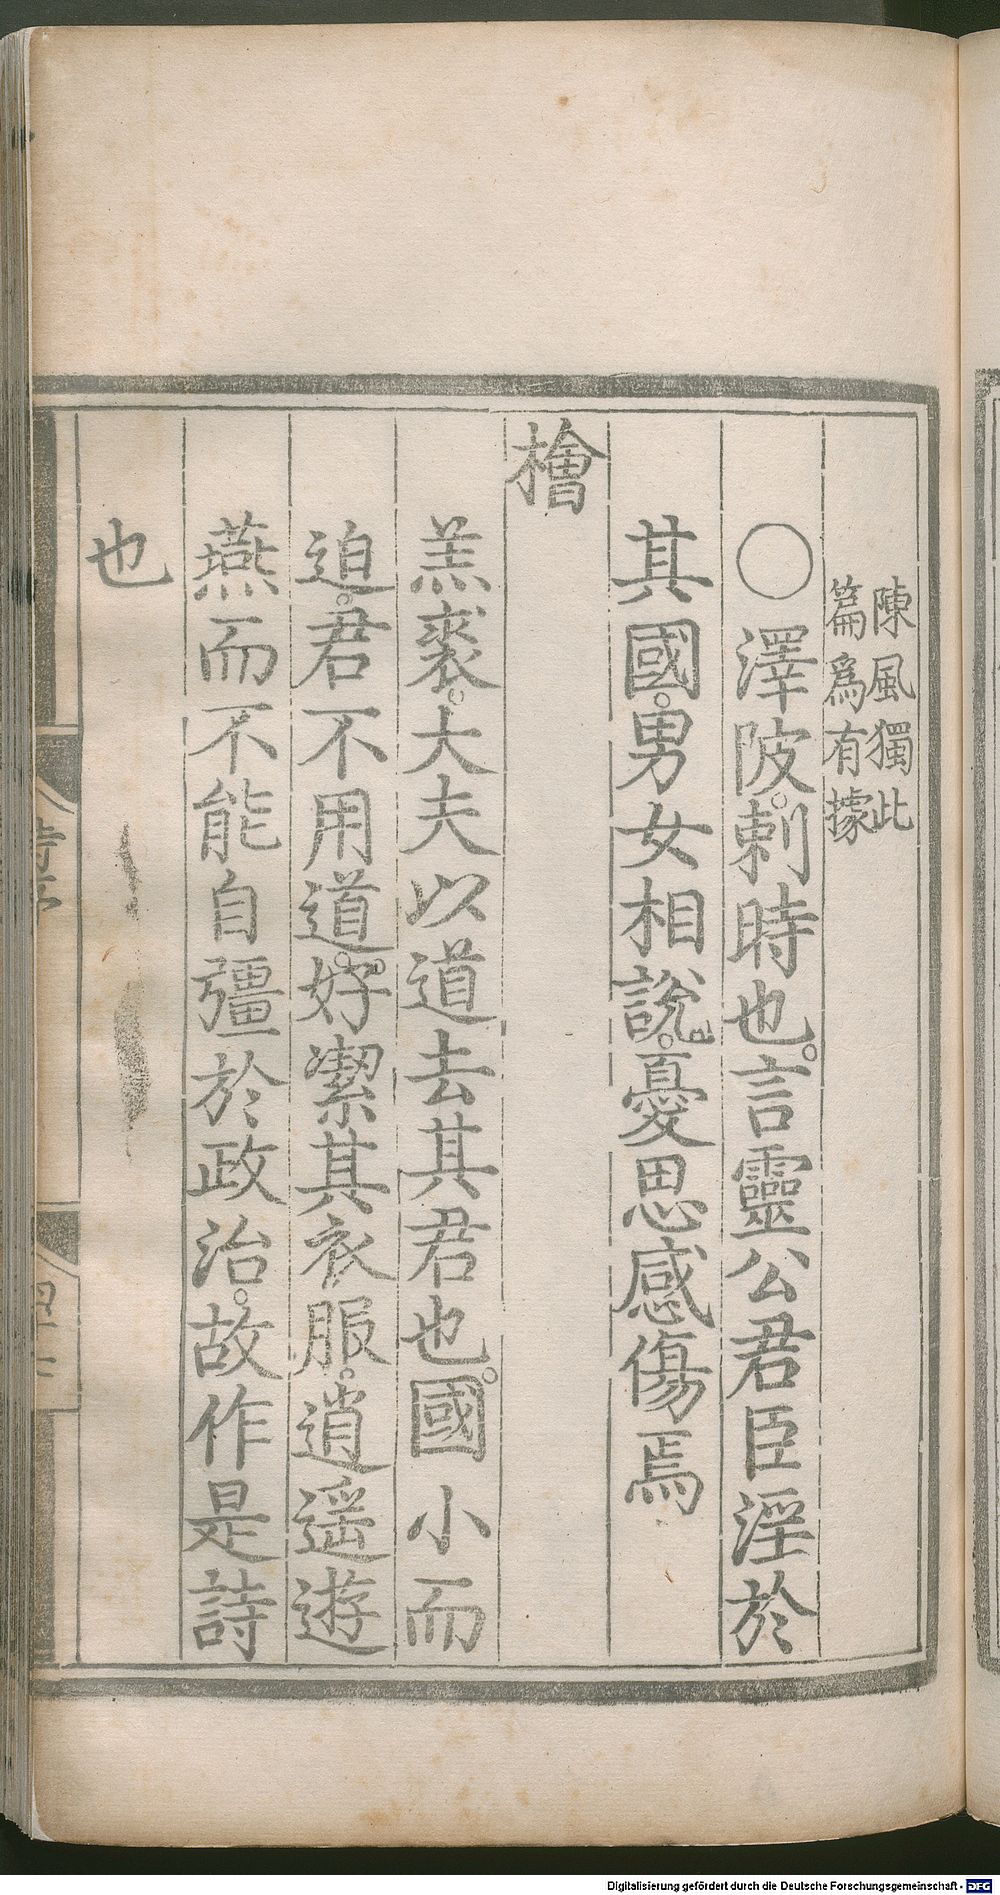 陳風獨此
篇爲有據
○澤陂。刺時也。言靈公君臣淫於
其國。男女相說。憂思感傷焉
檜
羔裘。大夫以道去其君也。國小而
迫。君不用道。好潔其衣服。逍遥遊
燕而不能自彊於政治。故作是詩
也
Digitalisierung gefördert durch die Deutsche Forschungsgemeinschaft - DFG